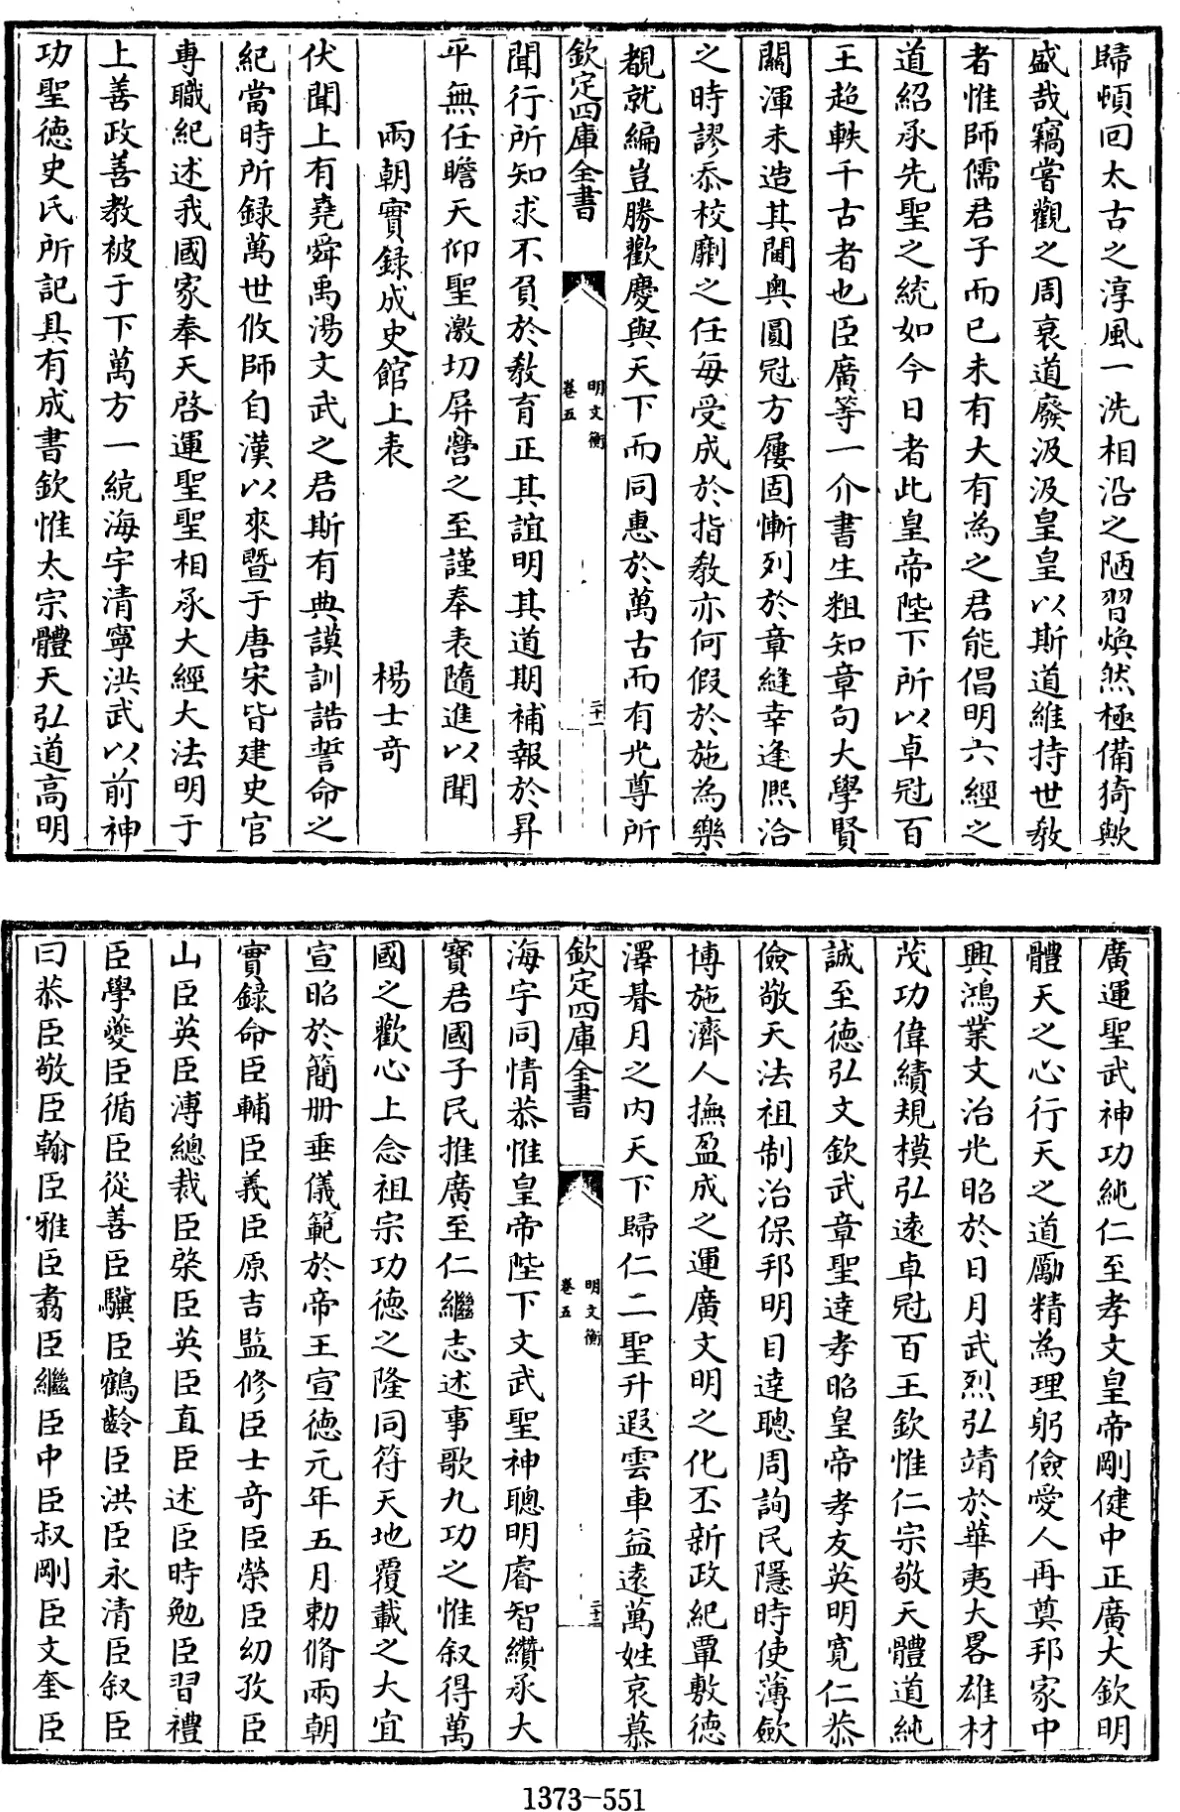 歸頓回太古之淳風一洗相沿之陋習煥然極備猗歟
盛哉竊嘗觀之周衰道廢汲汲皇皇以斯道維持世教
者惟師儒君子而已未有大有為之君能倡明六經之
道紹承先聖之統如今日者此皇帝陛下所以卓冠百
王超軼千古者也臣廣等一介書生粗知章句大學賢
關渾未造其閫奥圓冠方屨固慚列於章縫幸逢熈洽
之時謬忝校讎之任每受成於指教亦何假於施為樂
覩就編豈勝歡慶與天下而同惠於萬古而有光尊所
欽定四庫全書
明文衡
卷五
二十一
聞行所知求不負於教育正其誼明其道期補報於昇
平無任瞻天仰聖激切屏營之至謹奉表隨進以聞
兩朝實録成史館上表 楊士奇
伏聞上有堯舜禹湯文武之君斯有典謨訓誥誓命之
紀當時所録萬世攸師自漢以來暨于唐宋皆建史官
專職紀述我國家奉天啓運聖聖相承大經大法明于
上善政善教被于下萬方一統海宇清寧洪武以前神
功聖德史氏所記具有成書欽惟太宗體天弘道高明
廣運聖武神功純仁至孝文皇帝剛健中正廣大欽明
體天之心行天之道勵精為理躬儉愛人再奠邦家中
興鴻業文治光昭於日月武烈弘靖於華夷大畧雄材
茂功偉績規模弘遠卓冠百王欽惟仁宗敬天體道純
誠至德弘文欽武章聖達孝昭皇帝孝友英明寛仁恭
儉敬天法祖制治保邦明目達聰周詢民隱時使薄斂
博施濟人撫盈成之運廣文明之化丕新政紀覃敷德
澤朞月之内天下歸仁二聖升遐雲車益遠萬姓哀慕
欽定四庫全書
明文衡
卷五
二十二
海宇同情恭惟皇帝陛下文武聖神聰明睿智纘承大
寶君國子民推廣至仁繼志述事歌九功之惟叙得萬
國之歡心上念祖宗功德之隆同符天地覆載之大宜
宣昭於簡冊垂儀範於帝王宣德元年五月勅脩兩朝
實錄命臣輔臣義臣原吉監修臣士奇臣榮臣幼孜臣
山臣英臣溥總裁臣棨臣英臣直臣述臣時勉臣習禮
臣學夔臣循臣從善臣驥臣鶴齡臣洪臣永清臣叙臣
曰恭臣敬臣翰臣雅臣翥臣繼臣中臣叔剛臣文奎臣
1373-551